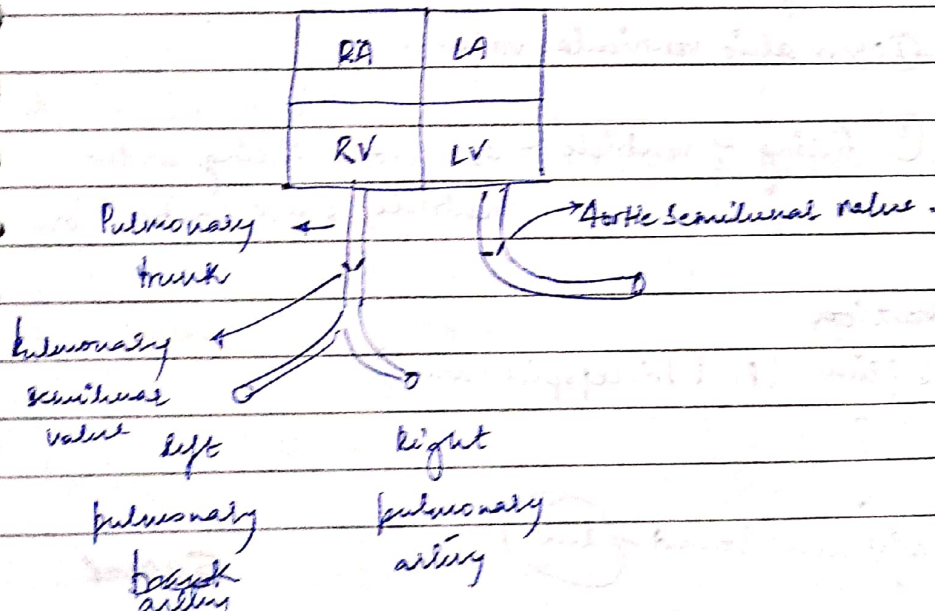 RA LA
RV LV
Pulmonary
trunk
Aortic Semilunar valve.
Pulmonary
semilunar
valve
left
pulmonary
artery
Right
pulmonary
artery